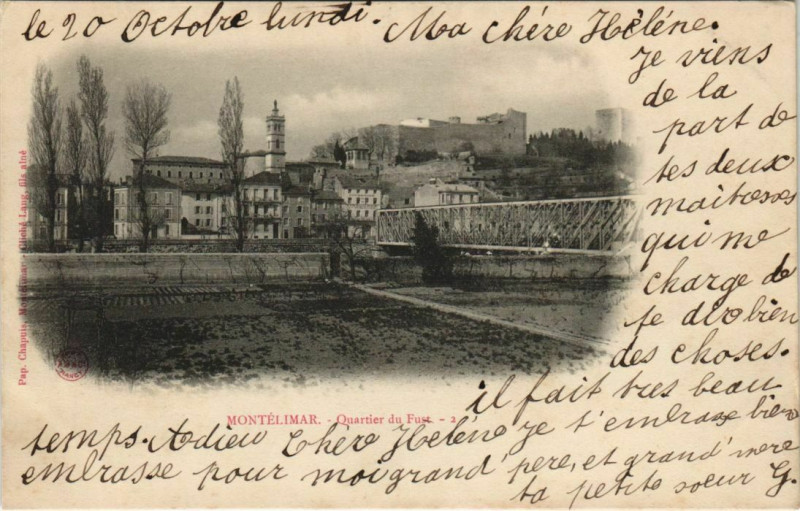 le 20 Octobre lundi. Ma chére Héléne.
Je viens
de la
part de
tes deux
maîtesses
qui me
charge de
te dire bien
des choses.
il fait tres beau
temps. Adieu Chère Héléne je t'embrasse bien
embrasse pour moi grand'pere, et grand'mere
ta petite soeur G.
MONTÉLIMAR. - Quartier du Fust. - 2
Pap. Chapuis, Montélimar. Cliché Lang, fils aîné